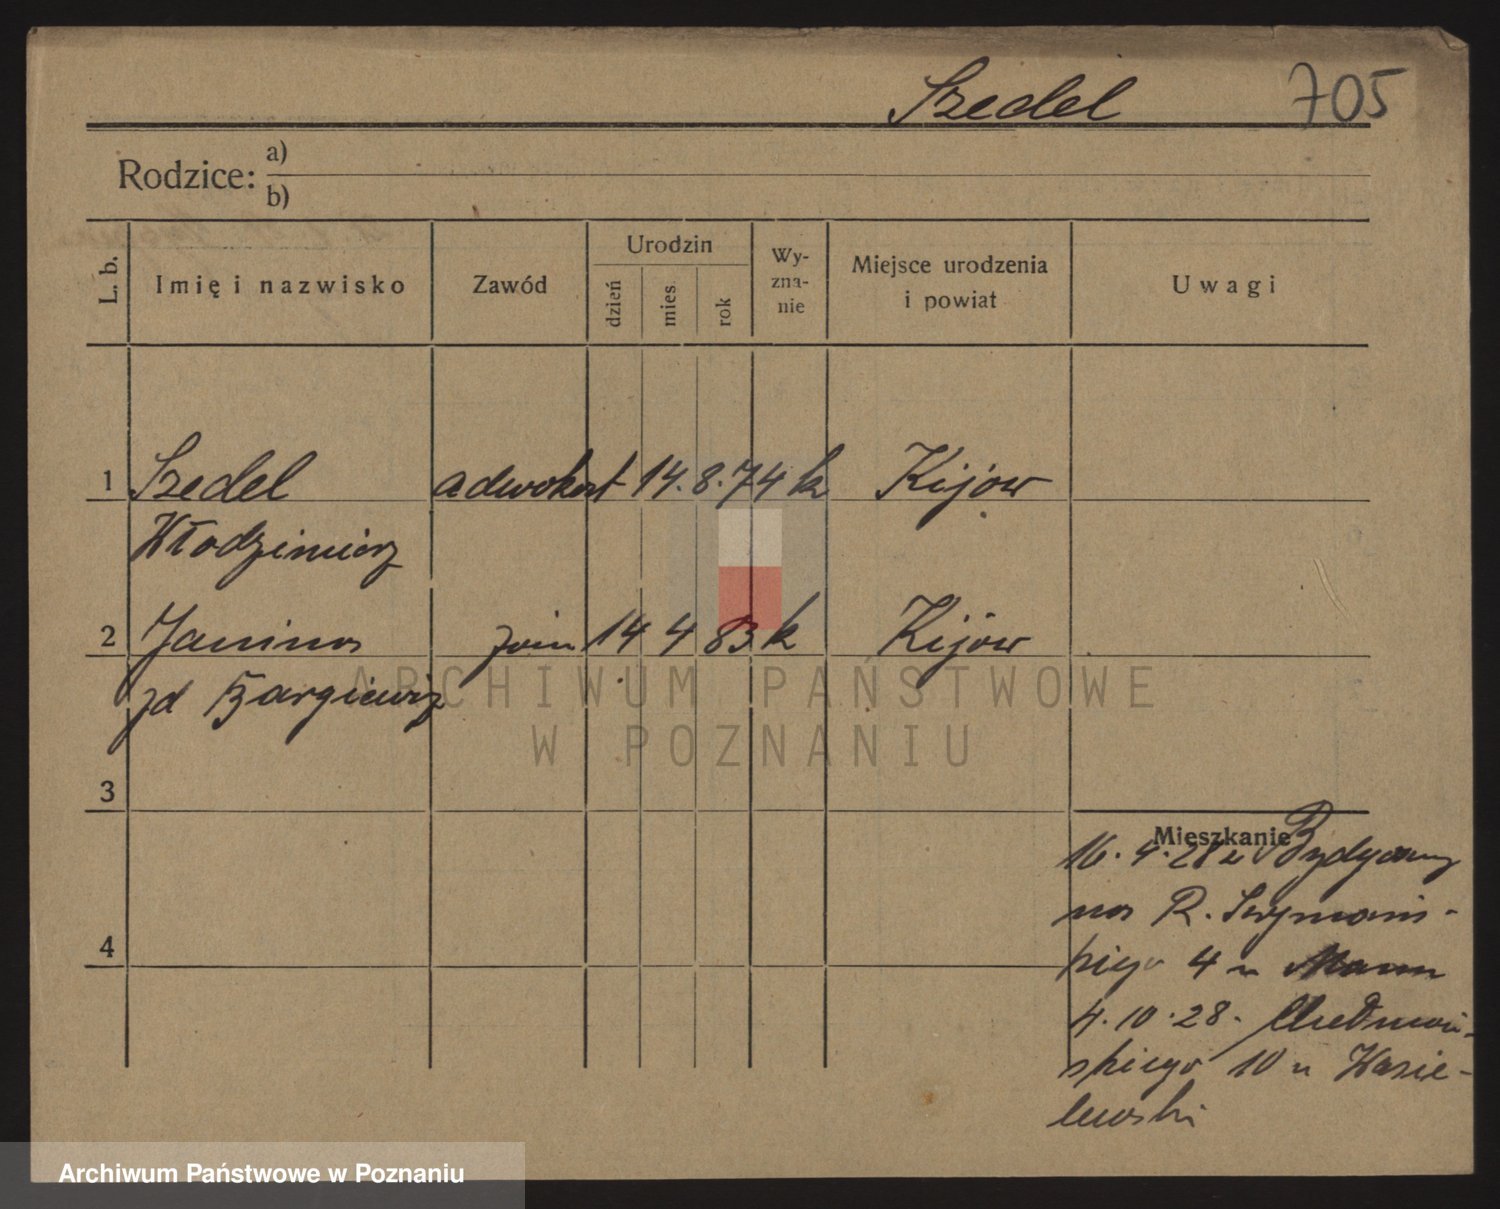 Szedel 705
Rodzice: a)
b)
L. b. Imię i nazwisko Zawód Urodzin dzień mies. rok Wy-zna-nie Miejsce urodzenia i powiat Uwagi
1 Szedel adwokat 14. 8. 74 k Kijów
Włodzimierz
2 Janina żona 14 4 83 k Kijów
zd Bargiewicz
ARCHIWUM PAŃSTWOWE
W POZNANIU
3
Mieszkanie
16. 4. 28 z Bydgoszczy
na R. Szymań-
4
skiego 4 u Mann
4. 10. 28. Chełmoń-
skiego 10 u Wasie-
lewski
Archiwum Państwowe w Poznaniu